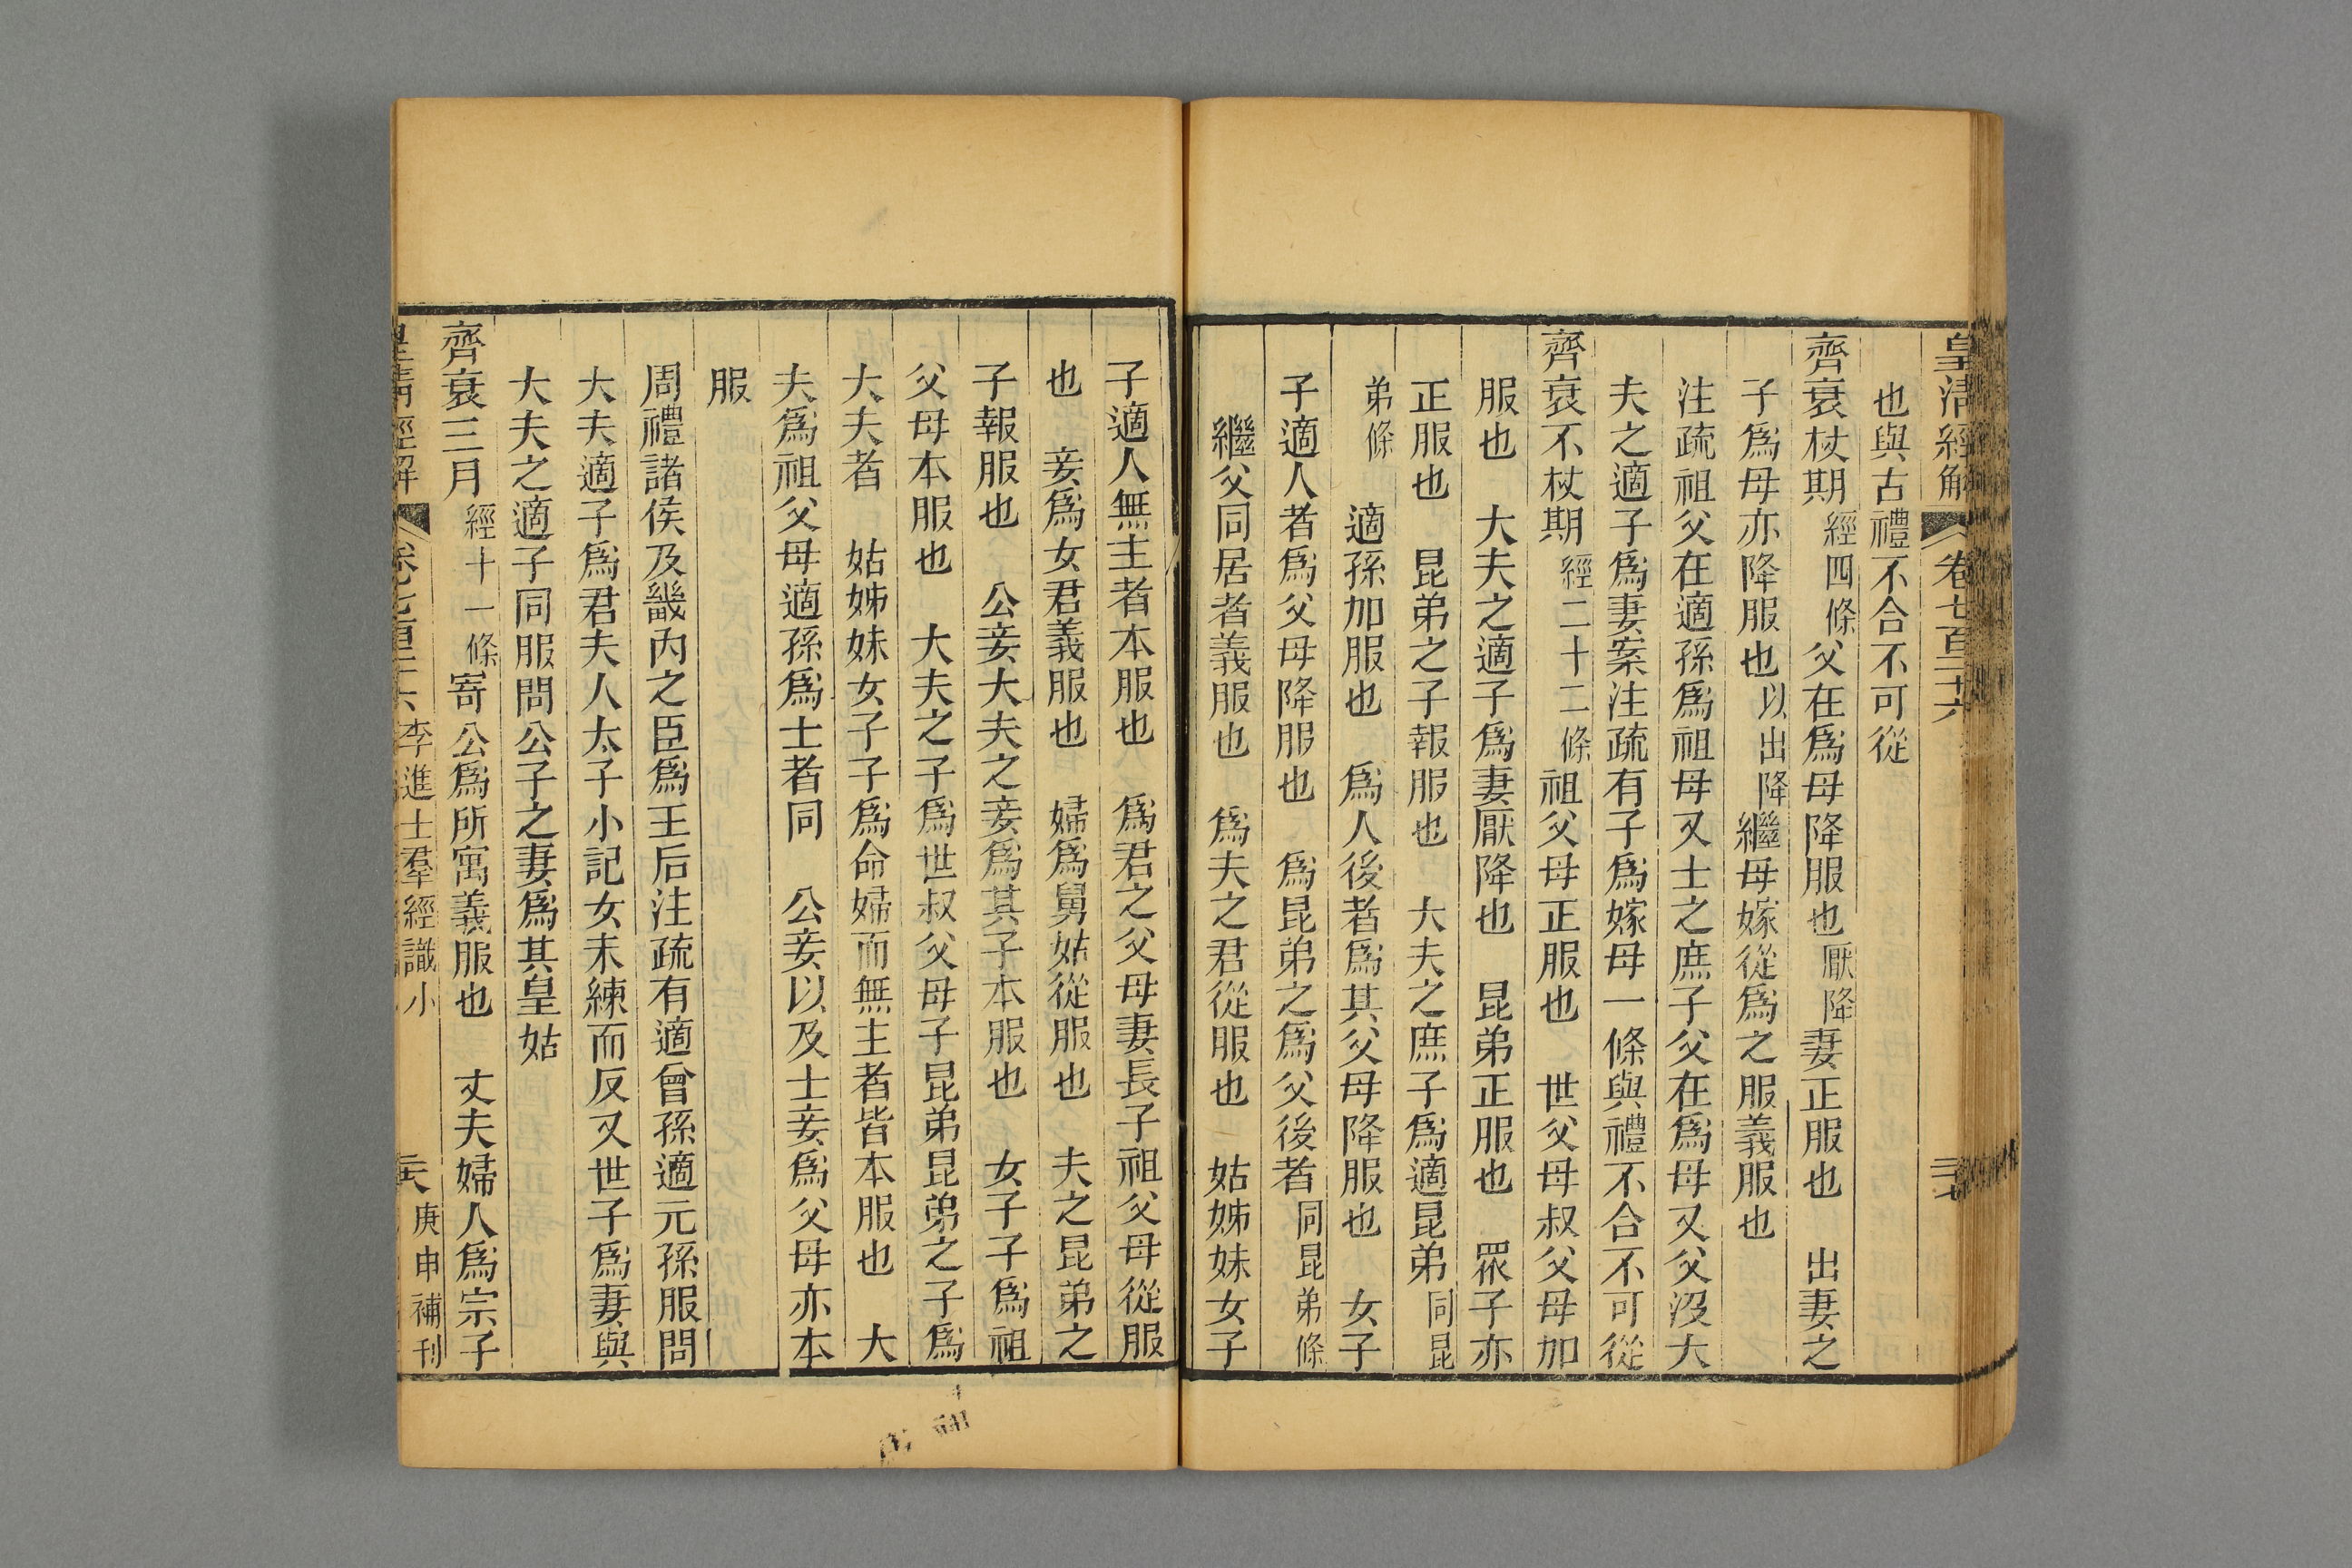 皇淸經解 卷七百二十六
也與古禮不合不可從
齊衰杖期經四條父在爲母降服也厭降妻正服也　出妻之
子爲母亦降服也以出降繼母嫁從爲之服義服也
注疏祖父在適孫爲祖母又士之庶子父在爲母又父沒大
夫之適子爲妻案注疏有子爲嫁母一條與禮不合不可從
齊衰不杖期經二十二條祖父母正服也　世父母叔父母加
服也　大夫之適子爲妻厭降也　昆弟正服也　眾子亦
正服也　昆弟之子報服也　大夫之庶子爲適昆弟同昆
弟條　適孫加服也　爲人後者爲其父母降服也　女子
子適人者爲父母降服也　爲昆弟之爲父後者同昆弟條
繼父同居者義服也　爲夫之君從服也　姑姊妹女子
子適人無主者本服也　爲君之父母妻長子祖父母從服
也　妾爲女君義服也　婦爲舅姑從服也　夫之昆弟之
子報服也　公妾大夫之妾爲其子本服也　女子子爲祖
父母本服也　大夫之子爲世叔父母子昆弟昆弟之子爲
大夫者　姑姊妹女子子爲命婦而無主者皆本服也　大
夫爲祖父母適孫爲士者同　公妾以及士妾爲父母亦本
服
周禮諸侯及畿內之臣爲王后注疏有適曾孫適元孫服問
大夫適子爲君夫人太子小記女未練而反又世子爲妻與
大夫之適子同服問公子之妻爲其皇姑
齊衰三月經十一條寄公爲所寓義服也　丈夫婦人爲宗子
皇淸經解 卷七百二十六 李進士羣經識小 庚申補刊